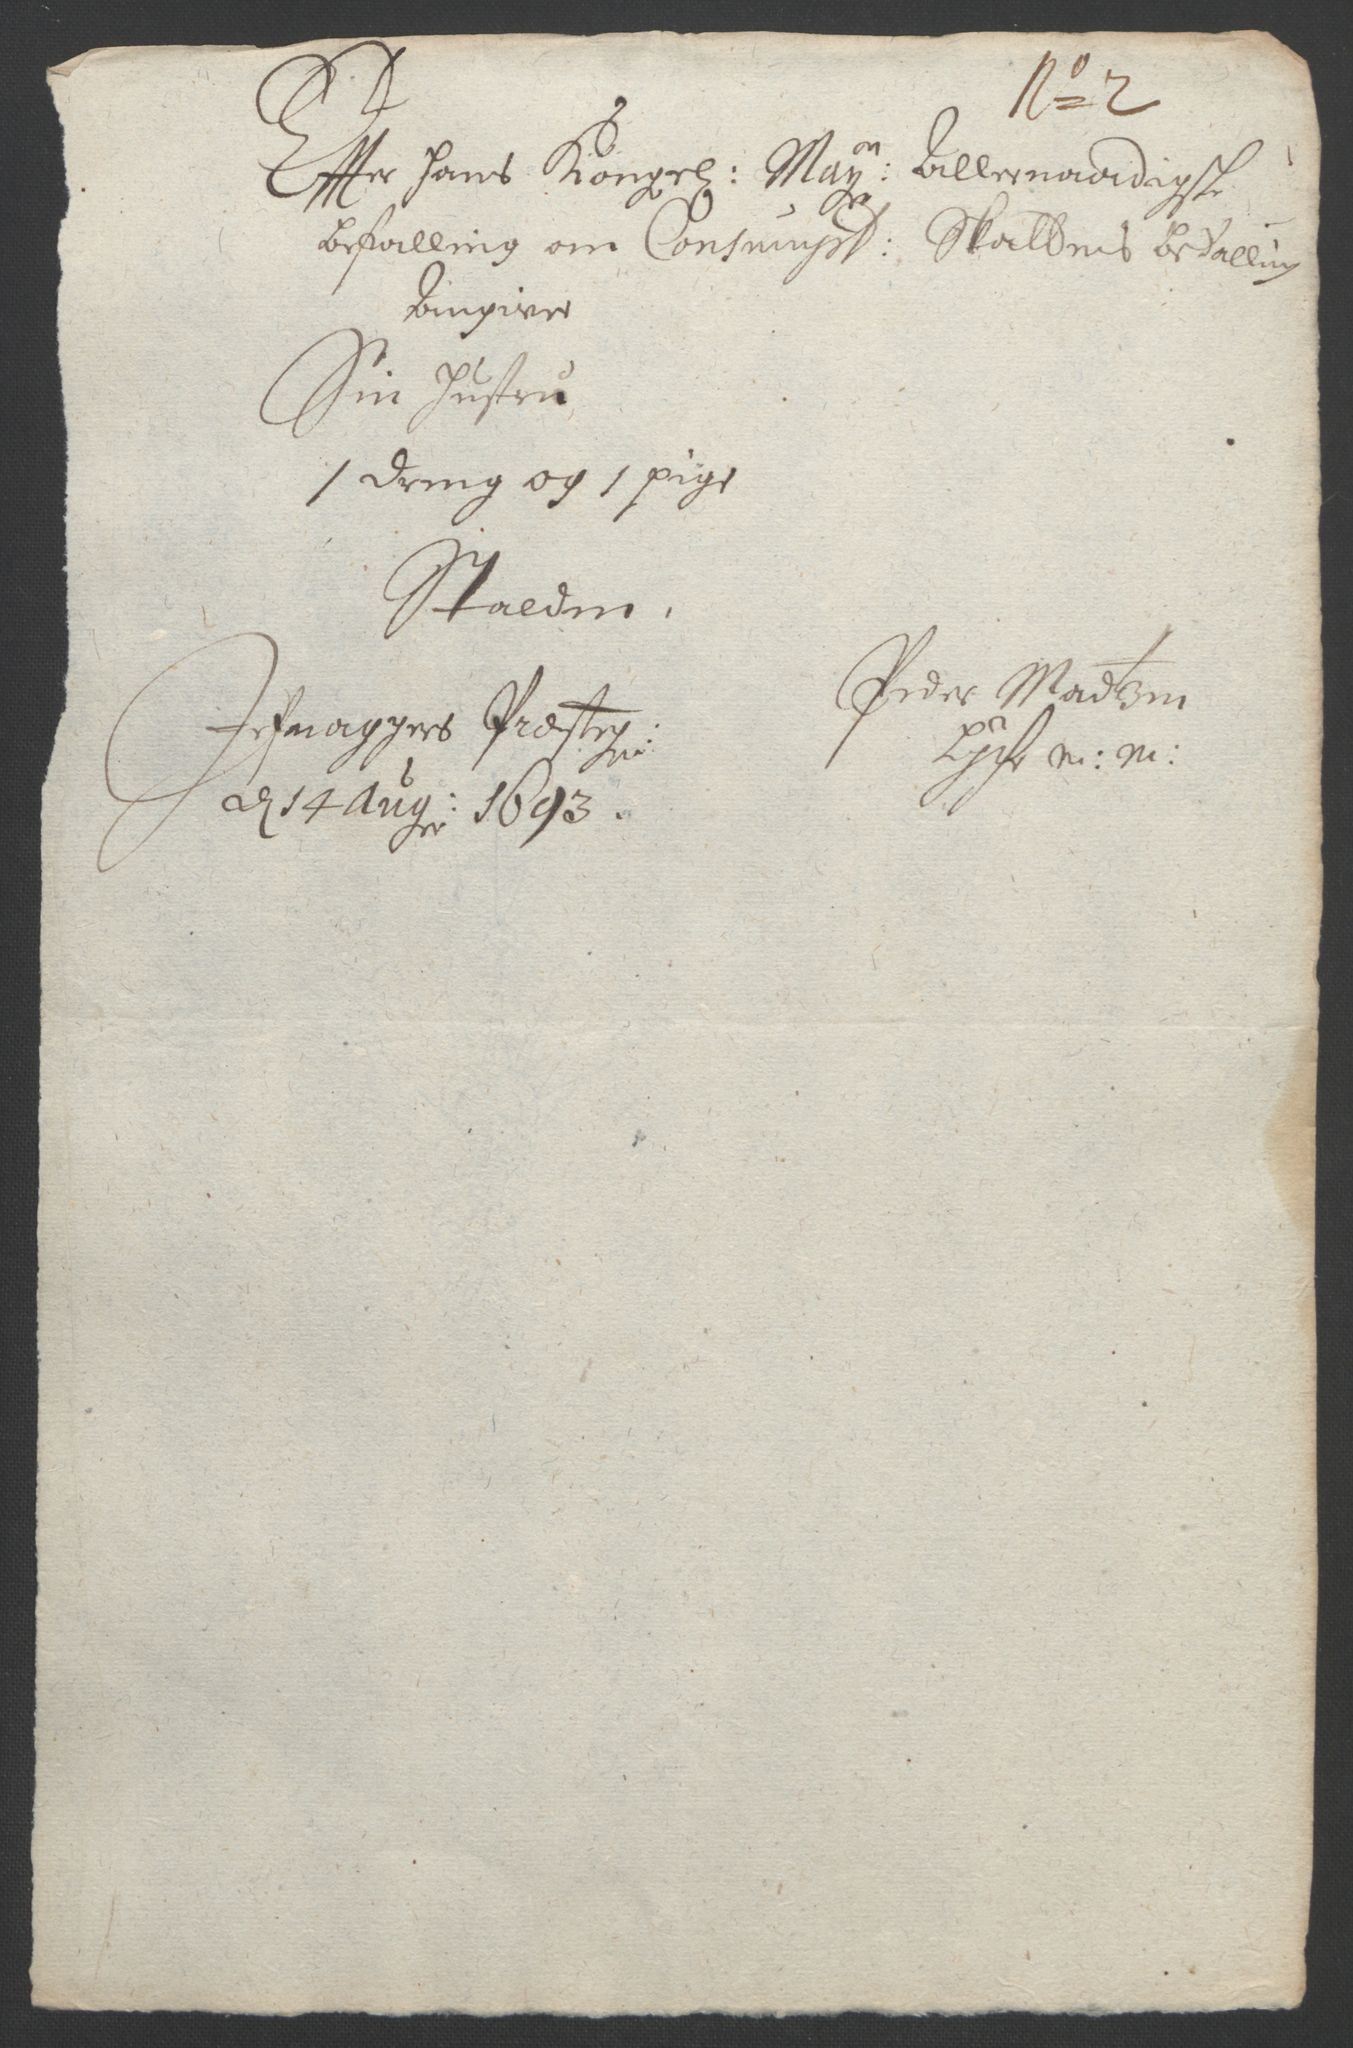 No 2
Effter hans Kongel: May: allernaadigste
befalling om Consumpt: Skattens betalling
angiver
Sin hustru
1 dreng og 1 pige
Staldens.
Jefnagger Præsteg:
d 14 Aug: 1693.
Peder Madtzen
m: m: